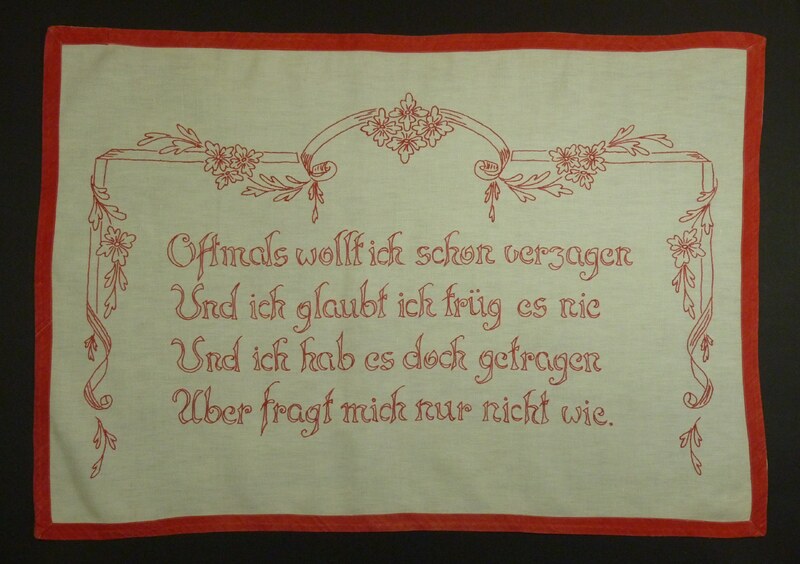 Oftmals wollt ich schon verzagen
Und ich glaubt ich trüg es nie
Und ich hab es doch getragen
Aber fragt mich nur nicht wie.